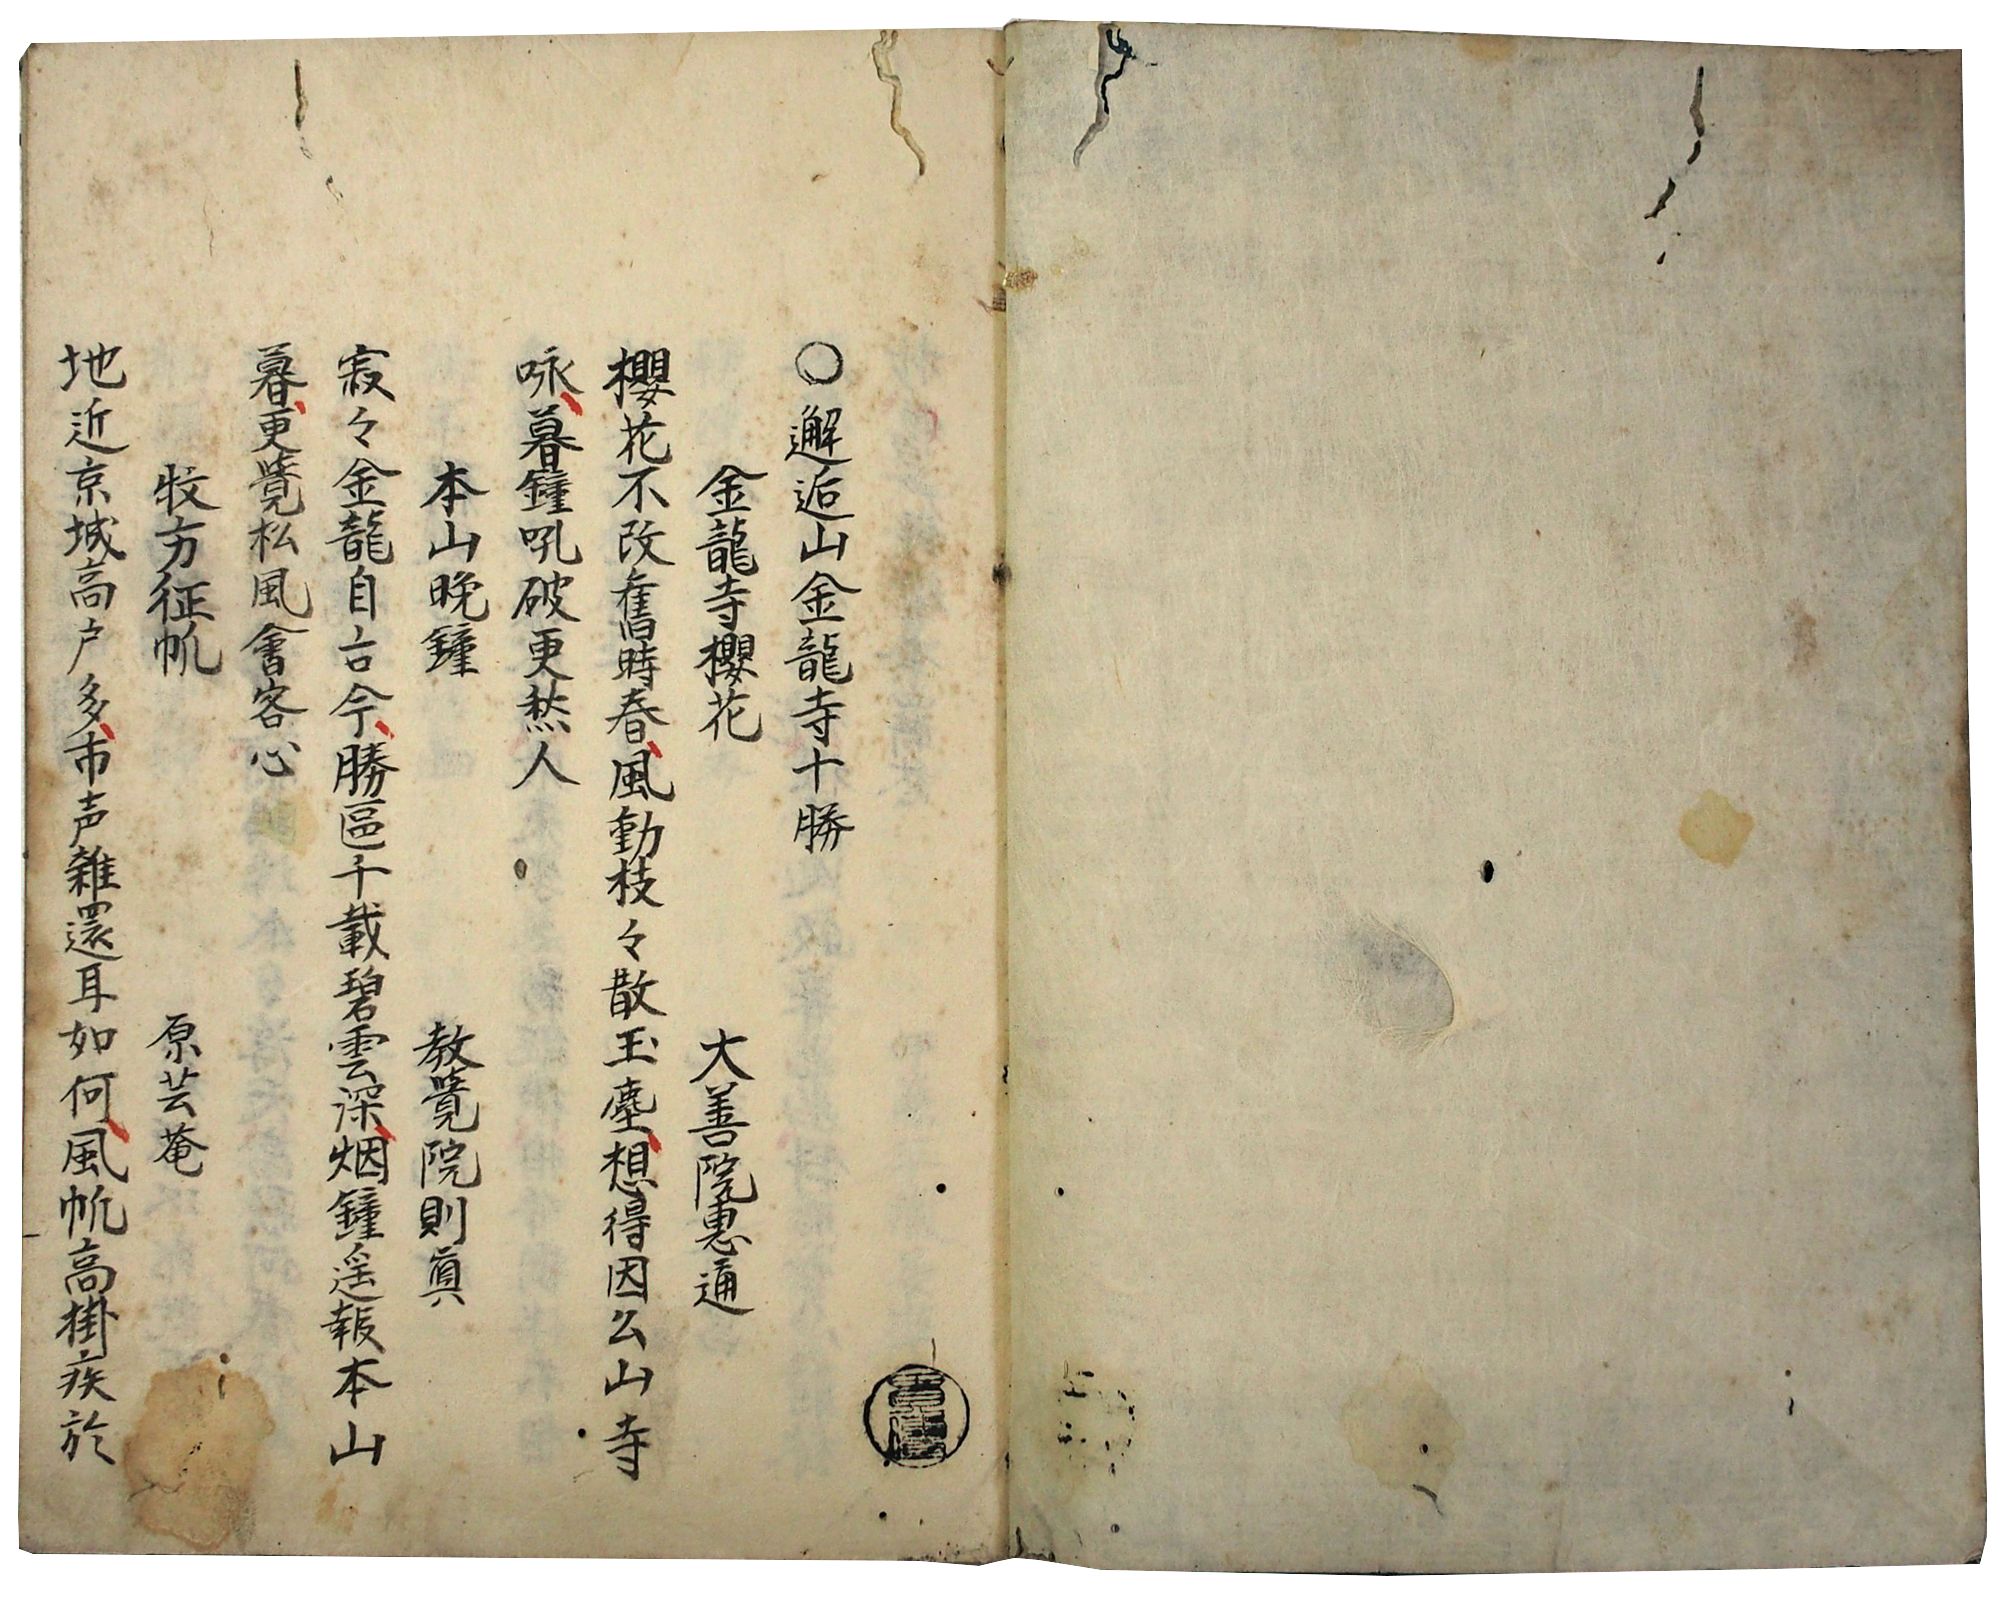 ○邂逅山金龍寺十勝
金龍寺櫻花 大善院惠通
櫻花不改舊時春風動枝々散玉塵想得因公山寺
咏暮鐘吼破更愁人
本山晩鐘 教覺院則眞
寂々金龍自古今勝區千載碧雲深烟鐘遥報本山
暮更覺松風會客心
牧方征帆 原芸菴
地近京城高戸多市声雜還耳如何風帆高掛疾於